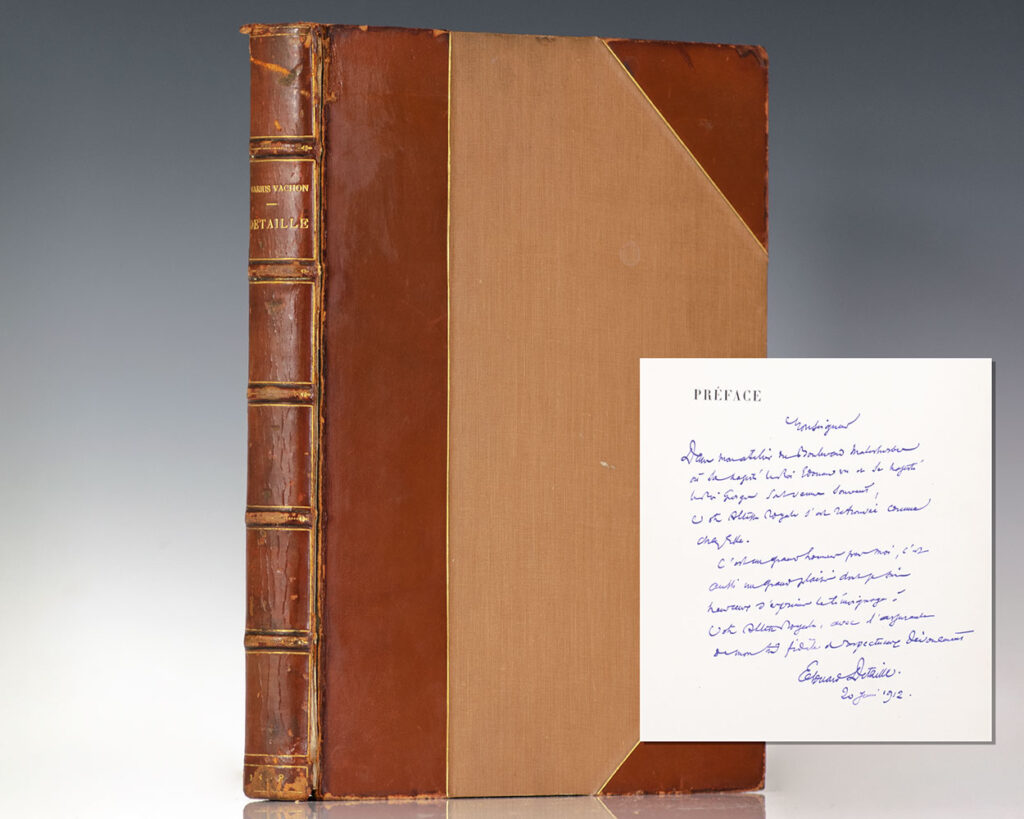 MARIUS VACHON
DETAILLE
PRÉFACE
Monseigneur
Dans mon atelier du Boulevard Malesherbes
où Sa Majesté le Roi Edouard VII et Sa Majesté
le Roi George sont venus souvent,
Votre Altesse Royale s'est retrouvée comme
chez Elle.
C'est un grand honneur pour moi, c'est
aussi un grand plaisir dont je suis
heureux d'exprimer le témoignage à
Votre Altesse Royale, avec l'assurance
de mon très fidèle et respectueux dévouement
Edouard Detaille.
20 juin 1912.